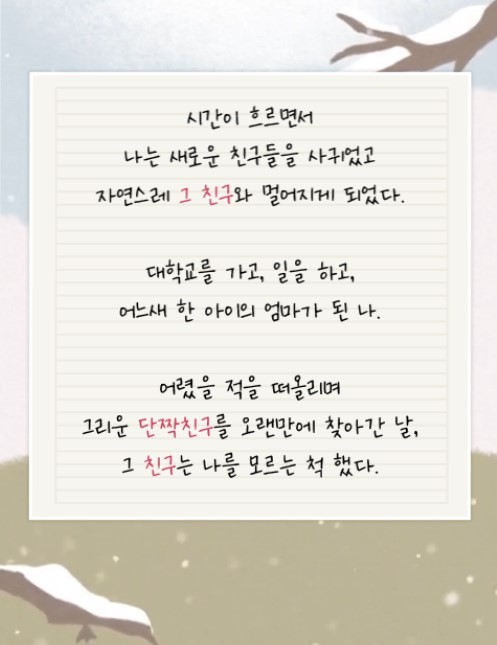 시간이 흐르면서
나는 새로운 친구들을 사귀었고
자연스레 그 친구와 멀어지게 되었다.
대학교를 가고, 일을 하고,
어느새 한 아이의 엄마가 된 나.
어렸을 적을 떠올리며
그리운 단짝친구를 오랜만에 찾아간 날,
그 친구는 나를 모르는 척 했다.